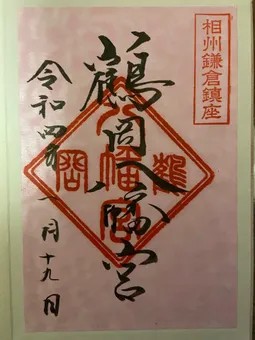 相州鎌倉鎮座
鶴岡八幡宮
令和四年一月十九日
鶴岡
八幡宮